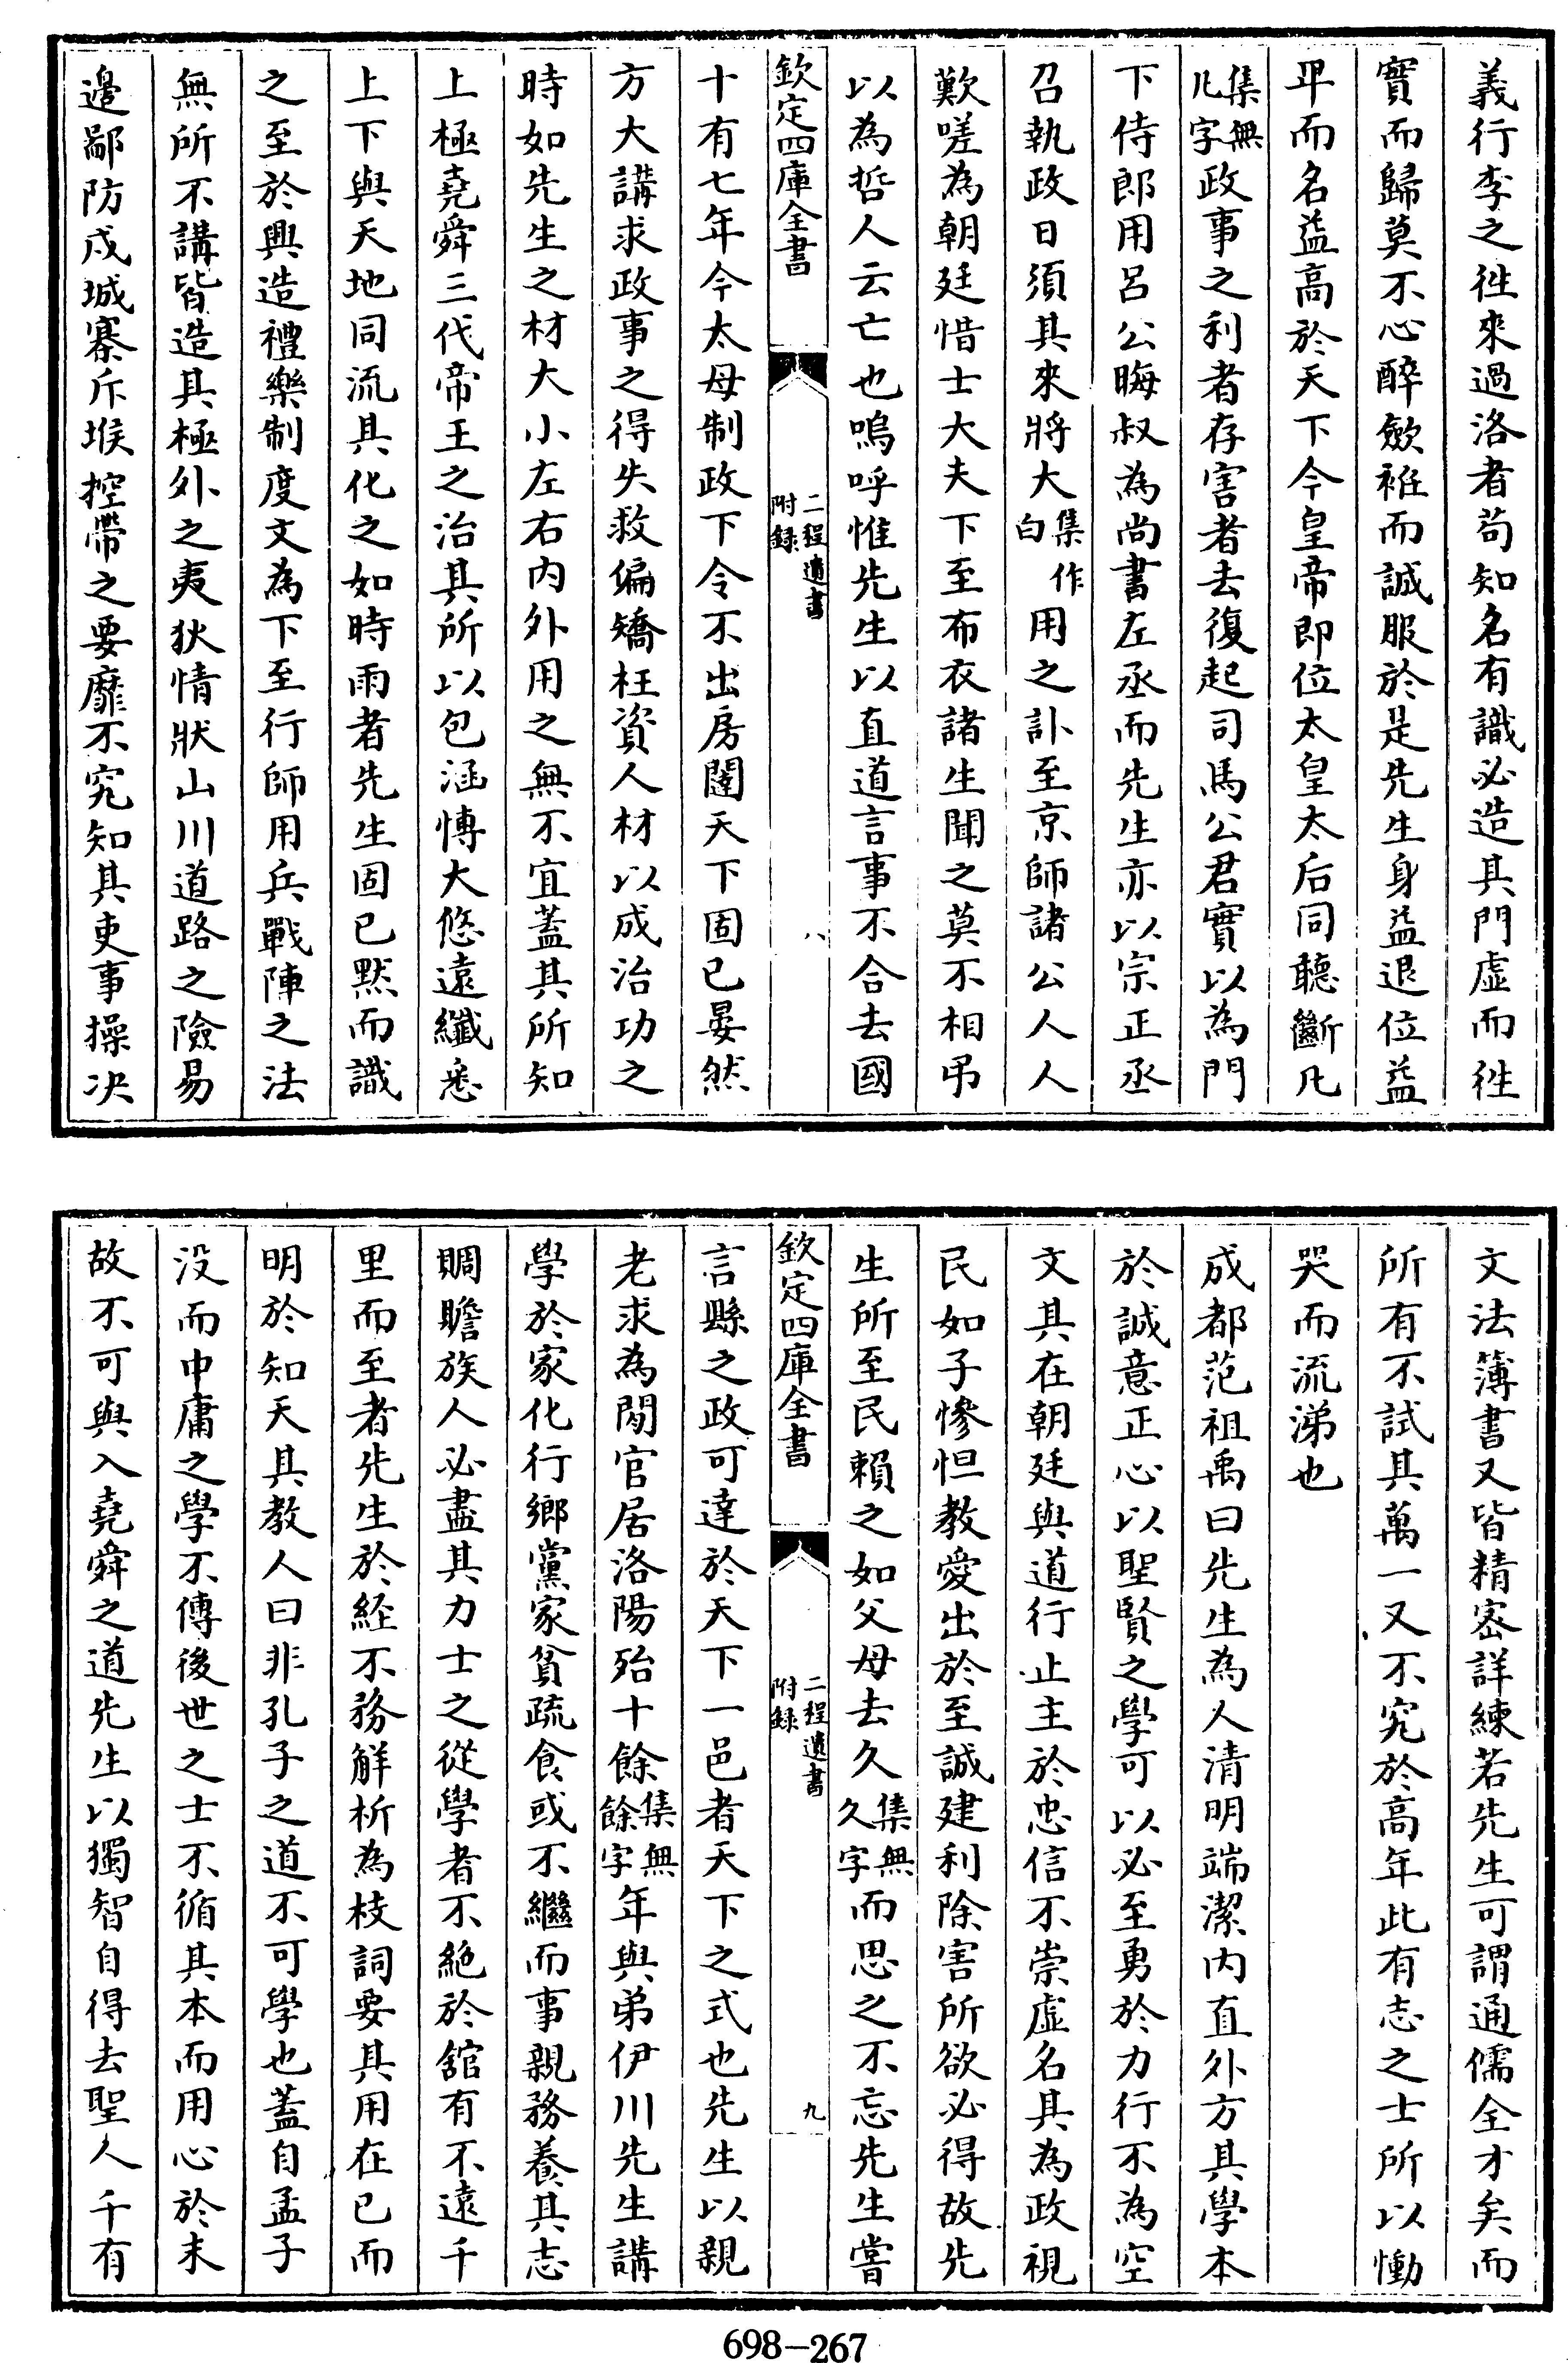 義行李之徃來過洛者苟知名有識必造其門虛而徃
實而歸莫不心醉斂袵而誠服於是先生身益退位益
卑而名益高於天下今皇帝即位太皇太后同聽斷凡
集無凡字政事之利者存害者去復起司馬公君實以為門
下侍郎用呂公晦叔為尚書左丞而先生亦以宗正丞
召執政日須其來將大集作白用之訃至京師諸公人人
歎嗟為朝廷惜士大夫下至布衣諸生聞之莫不相弔
以為哲人云亡也嗚呼惟先生以直道言事不合去國
欽定四庫全書
二程遺書附錄
八
十有七年今太母制政下令不出房闥天下固已晏然
方大講求政事之得失救偏矯枉資人材以成治功之
時如先生之材大小左右內外用之無不宜蓋其所知
上極堯舜三代帝王之治其所以包涵愽大悠遠纖悉
上下與天地同流其化之如時雨者先生固已黙而識
之至於興造禮樂制度文為下至行師用兵戰陣之法
無所不講皆造其極外之夷狄情狀山川道路之險易
邊鄙防戍城寨斥堠控帶之要靡不究知其吏事操决
文法簿書又皆精密詳練若先生可謂通儒全才矣而
所有不試其萬一又不究於高年此有志之士所以慟
哭而流涕也
成都范祖禹曰先生為人清明端潔內直外方其學本
於誠意正心以聖賢之學可以必至勇於力行不為空
文其在朝廷與道行止主於忠信不崇虛名其為政視
民如子慘怛教愛出於至誠建利除害所欲必得故先
生所至民賴之如父母去久集無久字而思之不忘先生嘗
欽定四庫全書
二程遺書附錄
九
言縣之政可達於天下一邑者天下之式也先生以親
老求為閒官居洛陽殆十餘集無餘字年與弟伊川先生講
學於家化行鄉黨家貧疏食或不繼而事親務養其志
賙贍族人必盡其力士之從學者不絶於舘有不遠千
里而至者先生於經不務解析為枝詞要其用在已而
明於知天其教人曰非孔子之道不可學也蓋自孟子
没而中庸之學不傳後世之士不循其本而用心於末
故不可與入堯舜之道先生以獨智自得去聖人千有
698-267